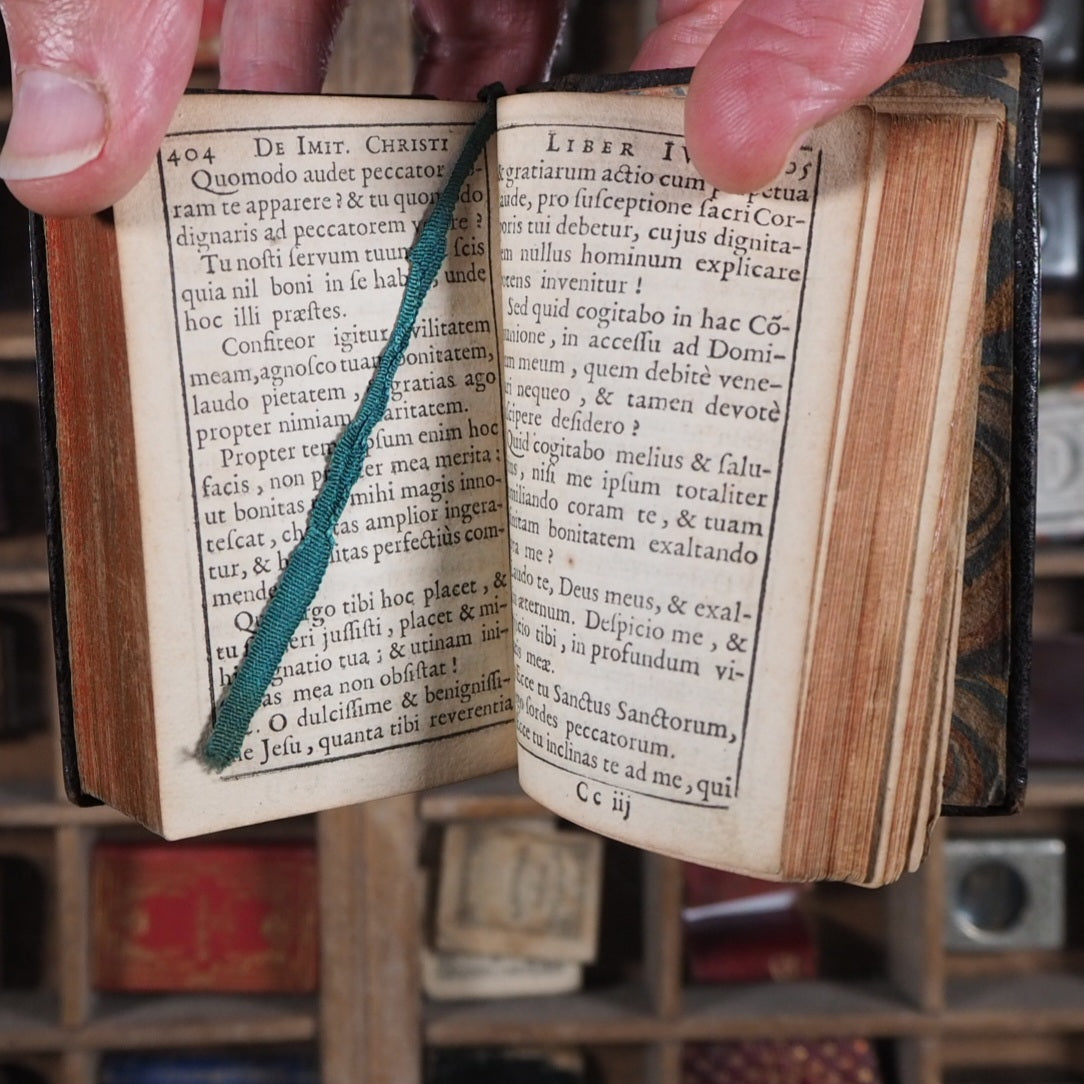 404 DE IMIT. CHRISTI
Quomodo audet peccator
ram te apparere ? & tu
dignaris ad peccatorem
Tu noſti ſervum tuum ſcis
quia nil boni in ſe unde
hoc illi præſtes.
Confiteor igitur vilitatem
meam, agnoſco tuam bonitatem,
laudo pietatem, gratias ago
propter nimiam
Propter enim hoc
facis, non mea merita :
ut bonitas mihi magis inno-
teſcat, amplior ingera-
tur, & perfectiùs com-

tibi hoc placet, &
tu juſſiſti, placet & mi-
tua ; & utinam ini-
mea non obſiſtat !
O dulciſſime & benigniſſi-
Jeſu, quanta tibi reverentia
LIBER
gratiarum actio cum
pro ſuſceptione ſacri Cor-
tui debetur, cujus dignita-
nullus hominum explicare
invenitur !
Sed quid cogitabo in hac Cõ-
in acceſſu ad Domi-
meum, quem debitè vene-
nequeo, & tamen devotè
deſidero ?
Quid cogitabo melius & ſalu-
niſi me ipſum totaliter
coram te, & tuam
bonitatem exaltando
me ?
te, Deus meus, & exal-
æternum. Deſpicio me, &
tibi, in profundum vi-
meæ.
Ecce tu Sanctus Sanctorum,
ſordes peccatorum.
tu inclinas te ad me, qui
Cc iij